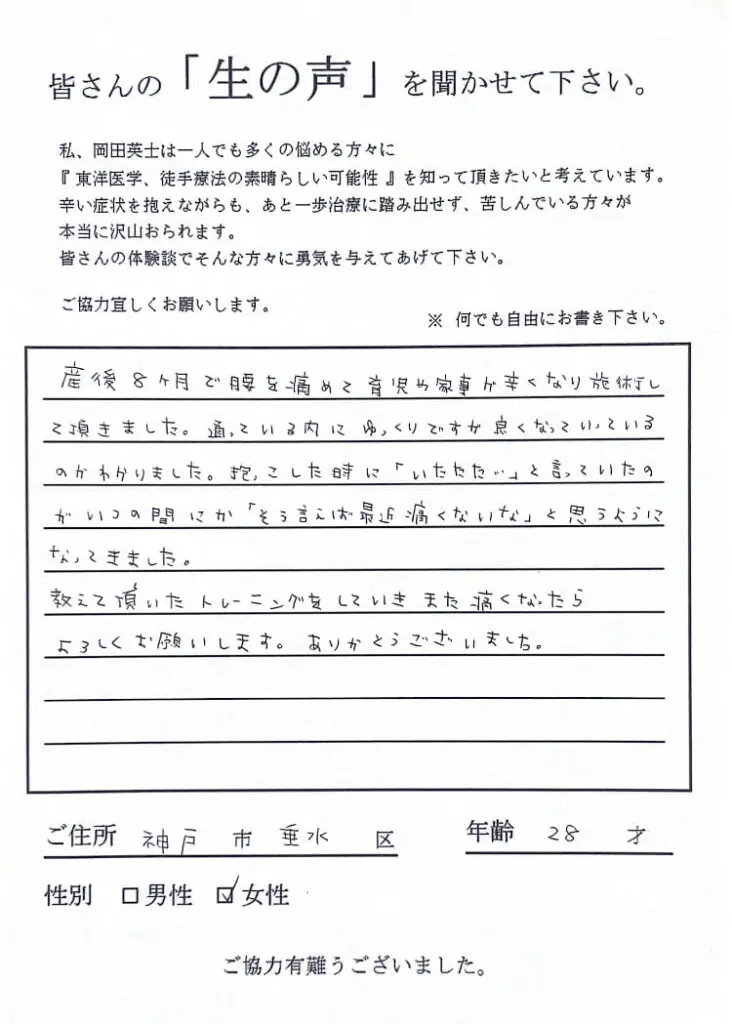 皆さんの「生の声」を聞かせて下さい。
私、岡田英士は一人でも多くの悩める方々に
『 東洋医学、徒手療法の素晴らしい可能性 』を知って頂きたいと考えています。
辛い症状を抱えながらも、あと一歩治療に踏み出せず、苦しんでいる方々が
本当に沢山おられます。
皆さんの体験談でそんな方々に勇気を与えてあげて下さい。
ご協力宜しくお願いします。
※ 何でも自由にお書き下さい。
産後8ヶ月で腰を痛めて育児や家事が辛くなり施術し
て頂きました。通っている内にゆっくりですが良くなっていっている
のがわかりました。抱っこした時に「いたたた…」と言っていたの
がいつの間にか「そう言えば最近痛くないな」と思うように
なってきました。
教えて頂いたトレーニングをしていきまた痛くなったら
よろしくお願いします。ありがとうございました。
ご住所 神戸 市 垂水 区 年齢 28 才
性別 □男性 ☑女性
ご協力有難うございました。